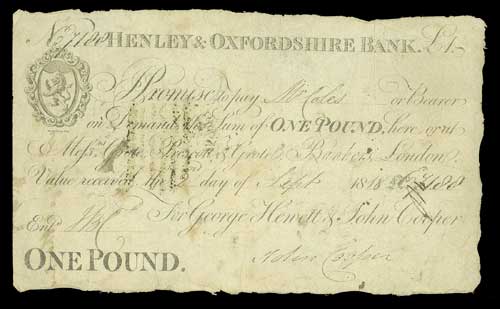 No 7188 HENLEY & OXFORDSHIRE BANK. £1
I Promise to pay Mr Coles or Bearer
on Demand the Sum of ONE POUND, here or at
Messrs Prescott & Grote, Bankers, London,
Value received, the day of Sept 1818 No 7188
For George Hewett & John Cooper
Entd
ONE POUND. John Cooper